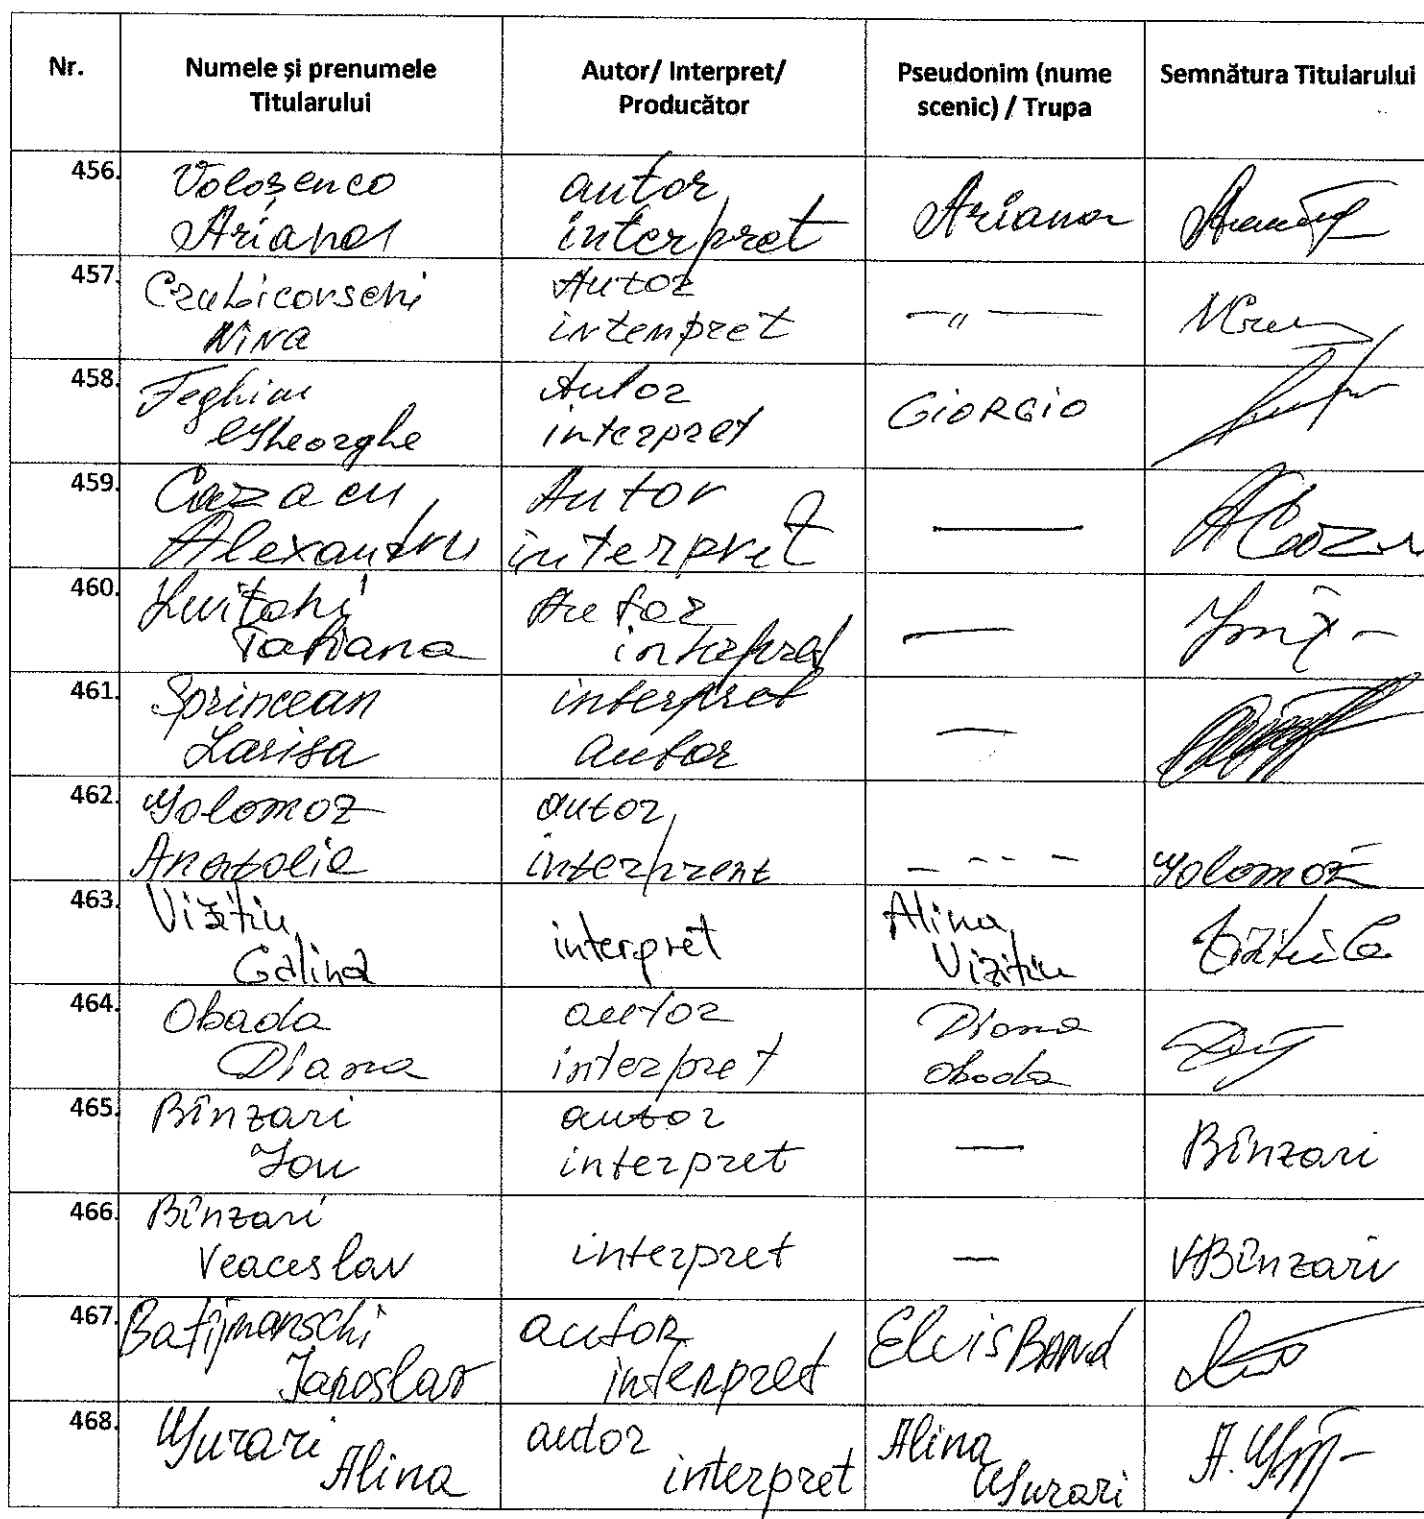 Nr.
Numele și prenumele
Titularului
Autor/ Interpret/
Producător
Pseudonim (nume
scenic) / Trupa
Semnătura Titularului
456.
Voloșenco
Ariana
autor
interpret
Ariana
457.
Nina
Autor
intempret
—〃—
458.
Feghiu
Gheorghe
Autor
interpret
GIORGIO
459.
Cazacu
Alexandru
Autor
interpret
—
ACaza
460.
Tatiana
Autor
interpret
—
461.
Sprincean
Larisa
interpret
autor
—
462.
Golomoz
Anatolie
autor
interprent
- - - -
Golomoz
463.
Vizitiu
Galina
interpret
Alina
Vizitiu
464.
Obada
Diana
autor
interpret
Diana
Obada
465.
Bînzari
Ion
autor
interpret
—
Bînzari
466.
Bînzari
Veaceslav
interpret
—
VBînzari
467.
Batijmanschi
Iaroslav
autor
interpret
Elvis BAND
468.
Gurari
Alina
autor
interpret
Alina
Gurari